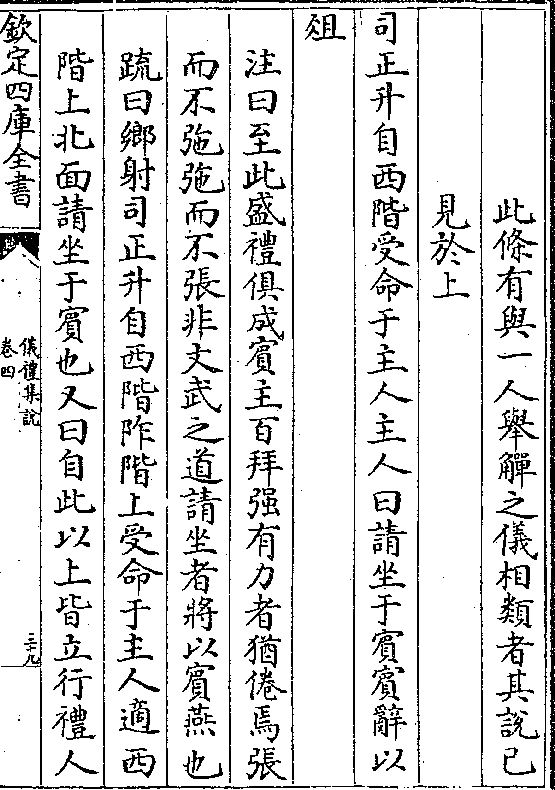 此條有與一人舉觶之儀相類者其說已
見於上
司正升自西階受命于主人主人曰請坐于賓賓辭以
俎
注曰至此盛禮俱成賓主百拜强有力者猶倦焉張
而不弛弛而不張非文武之道請坐者將以賓燕也
疏曰鄉射司正升自西階阼階上受命于主人適西
階上北面請坐于賓也又曰自此以上皆立行禮人
欽定四庫全書
儀禮集說
卷四
三十九